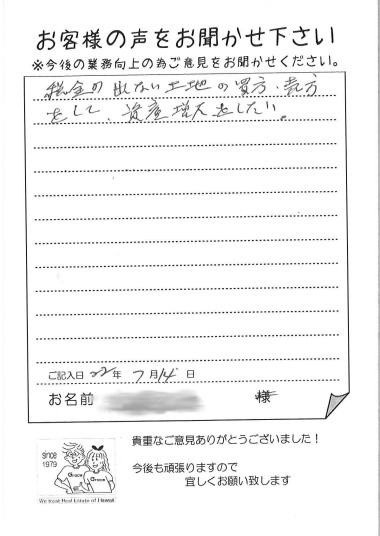 お客様の声をお聞かせ下さい
※今後の業務向上の為ご意見をお聞かせください。
税金の出ない土地の買方、売方
をして、資産増大をしたい。
ご記入日 22年 7月14日
お名前 様
貴重なご意見ありがとうございました！
since
1979
Grace
Grace
今後も頑張りますので
宜しくお願い致します
Real Estate of Hawaii